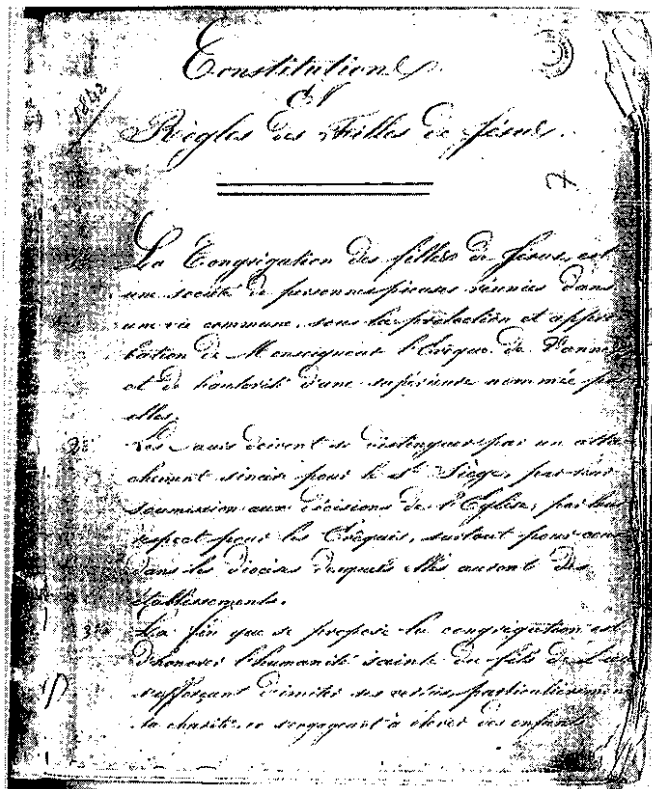 Constitutions
et
Règles des Filles de Jésus.
1842
7
La Congrégation des filles de Jésus, est
une société de personnes pieuses réunies dans
une vie commune, sous la protection et appro-
bation de Monseigneur l'Evêque de Vannes
et de l'autorité d'une supérieure nommée par
elles.
2o
Les sœurs doivent se distinguer par un atta-
chement sincère pour le St Siège, par leur
soumission aux décisions de l'Eglise, par leur
respect pour les Evêques, surtout pour ceux
dans les diocèses desquels elles auront des
établissements.
3o
La fin que se propose la congrégation est
d'honorer l'humanité sainte du fils de Dieu
s'efforçant d'imiter ses vertus, particulièrement
sa charité, en s'engageant à élever des enfans